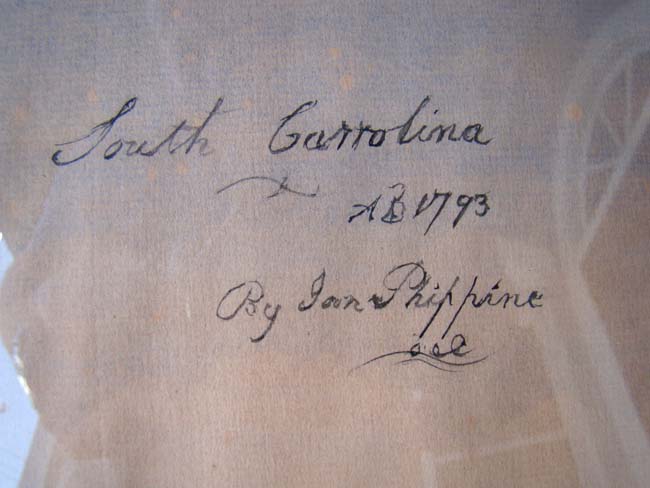 South Carrolina
AB 1793
By Jan Phippine